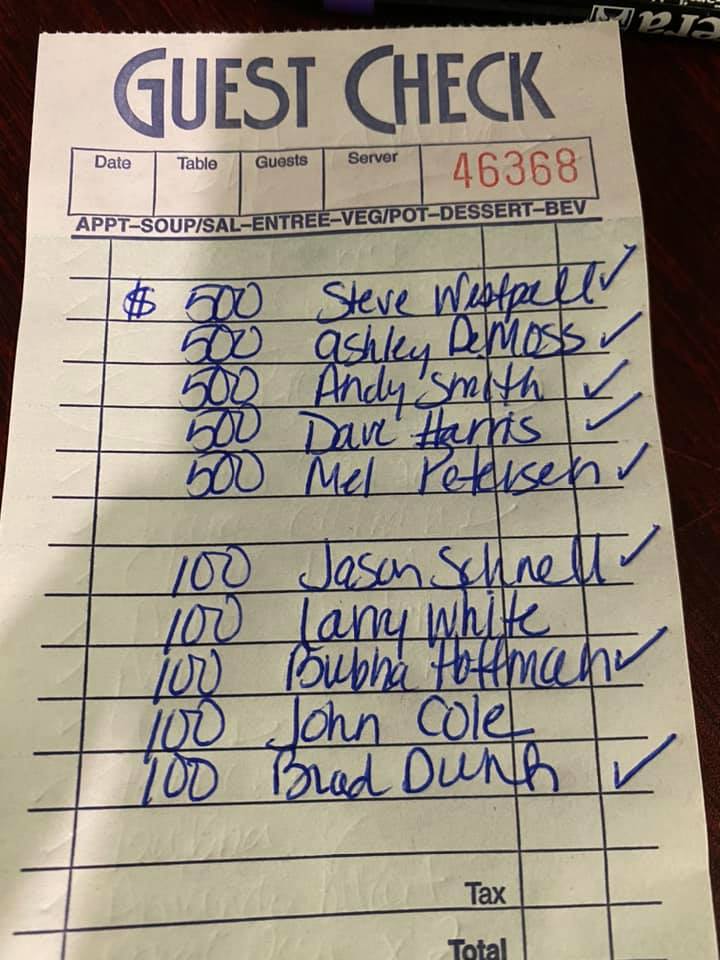 GUEST CHECK
Date Table Guests Server 46368
APPT–SOUP/SAL–ENTREE–VEG/POT–DESSERT–BEV
$ 500 Steve Westpall ✓
500 Ashley DeMoss ✓
500 Andy Smith ✓
500 Dave Harris ✓
500 Mel Petersen ✓
100 Jason Schnell ✓
100 Larry White
100 Bubha Hoffman ✓
100 John Cole
100 Brad Dunn ✓
Tax
Total